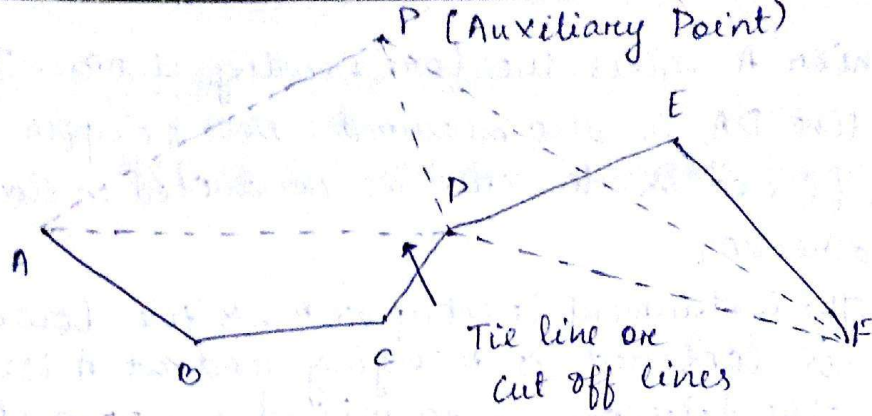 P (Auxiliary Point)
E
D
A
B
C
F
Tie line or
Cut off lines